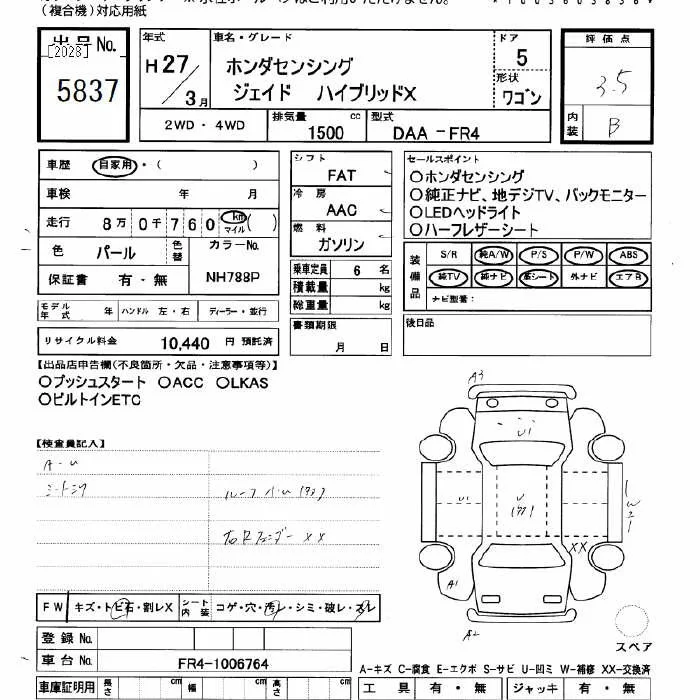 (複合機)対応用紙
出品No.
[2028]
5837
年式
H 27 / 3月
車名・グレード
ホンダセンシング
ジェイド ハイブリッドX
ドア
5
形状
ワゴン
2WD・4WD
排気量
1500 cc
型式
DAA-FR4
評価点
3.5
内装
B
車歴 自家用・( )
車検 年 月
走行 8万0千760 km マイル ( )
色 パール 色替 カラーNo.
保証書 有・無 NH788P
シフト
FAT
冷房
AAC
燃料
ガソリン
乗車定員 6 名
積載量 kg
総重量 kg
セールスポイント
○ホンダセンシング
○純正ナビ、地デジTV、バックモニター
○LEDヘッドライト
○ハーフレザーシート
装備品
S/R 純A/W P/S P/W ABS
純TV 純ナビ 革シート 外ナビ エアB
ナビ型番:
モデル年式 年 ハンドル 左・右 ディーラー・並行
リサイクル料金 10,440 円 預託済
書類期限
月 日
後日品
【出品店申告欄(不良箇所・欠品・注意事項等)】
○プッシュスタート ○ACC ○LKAS
○ビルトインETC
【検査員記入】
A・U
シートシワ
ルーフ
右Rフェンダー XX
A3
U1
U1
U
XX
W2
A1
A2
FW キズ・トビ石・割レX シート内装 コゲ・穴・汚レ・シミ・破レ・スレ
スペア
登録No.
車台No. FR4-1006764
A-キズ C-腐食 E-エクボ S-サビ U-凹ミ W-補修 XX-交換済
車庫証明用 長さ cm 幅 cm 高さ cm
工具 有・無 ジャッキ 有・無